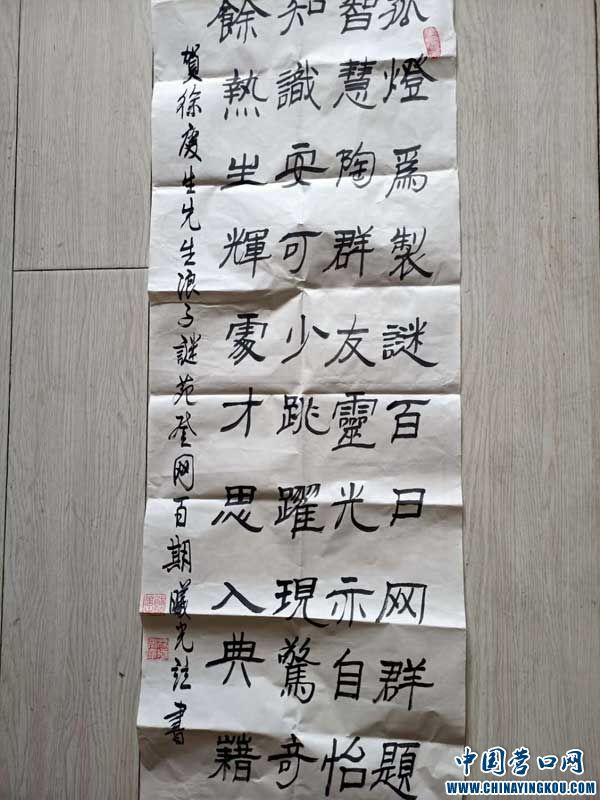 孤燈爲製謎百日网群題
智慧陶群友靈光亦自怡
知識安可少跳躍現驚奇
餘熱生輝處才思入典藉
賀徐慶生先生浪子謎苑登网百期曦光誌書
中国营口网
WWW.CHINAYINGKOU.COM